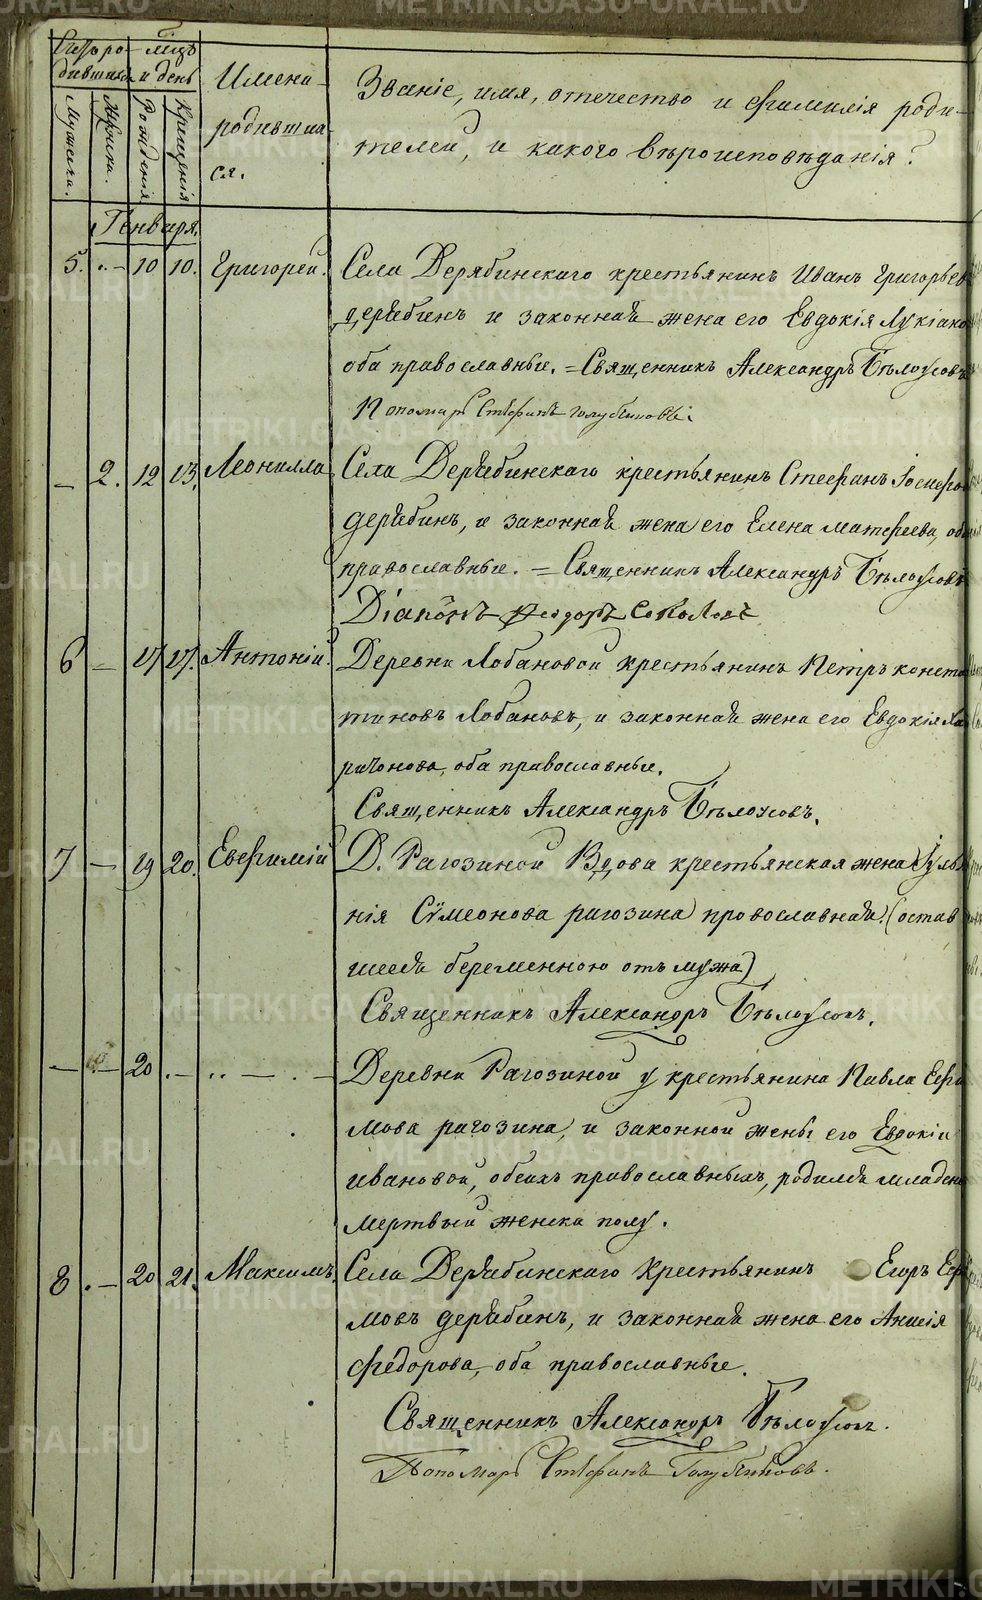 Счетъ ро- Мѣсяцъ
дившихся и день
Имена
родивша-
ся.
Мужеска.
Женска.
Рожденія
Крещенія
Званіе, имя, отчество и фамилія роди-
телей, и какого вѣроисповѣданія?
Генваря.
5. - 10 10. Григорей. Села Дерябинскаго крестьянинъ Иванъ Григорьев
Дерябинъ и законная жена его Евдокія Лукіано
оба православные. = Священникъ Александръ Бѣлоусовъ
Пономарь Стефанъ Голубчиковъ.
- 2. 12 13. Леонилла Села Дерябинскаго крестьянинъ Стефанъ Іосифов
Дерябинъ, и законная жена его Елена Матфеева, оба
православные. = Священникъ Александръ Бѣлоусовъ
Діаконъ Феодоръ Соколовъ
6 - 17 17. Антоній. Деревни Лобановой крестьянинъ Петръ Конста
тиновъ Лобановъ, и законная жена его Евдокія Ха
ритонова, оба православные.
Священникъ Александръ Бѣлоусовъ.
7 - 19 20. Евфимій Д. Рагозиной Вдова крестьянская жена Іулiа
нія Сѵмеонова Рагозина православная. (остав
шееся беременною отъ мужа)
Священникъ Александръ Бѣлоусовъ.
- - 20 - - Деревни Рагозиной у крестьянина Павла Ефи
мова Рагозина, и законной жены его Евдокіи
Ивановой, обеихъ православныхъ, родился младен
мертвый женска полу.
8 - 20 21. Максимъ. Села Дерябинскаго Крестьянинъ Егоръ Ефи
мовъ Дерябинъ, и законная жена его Анисія
Федорова, оба православные.
Священникъ Александръ Бѣлоусовъ.
Пономарь Стефанъ Голубчиковъ.
METRIKI.GASO-URAL.RU